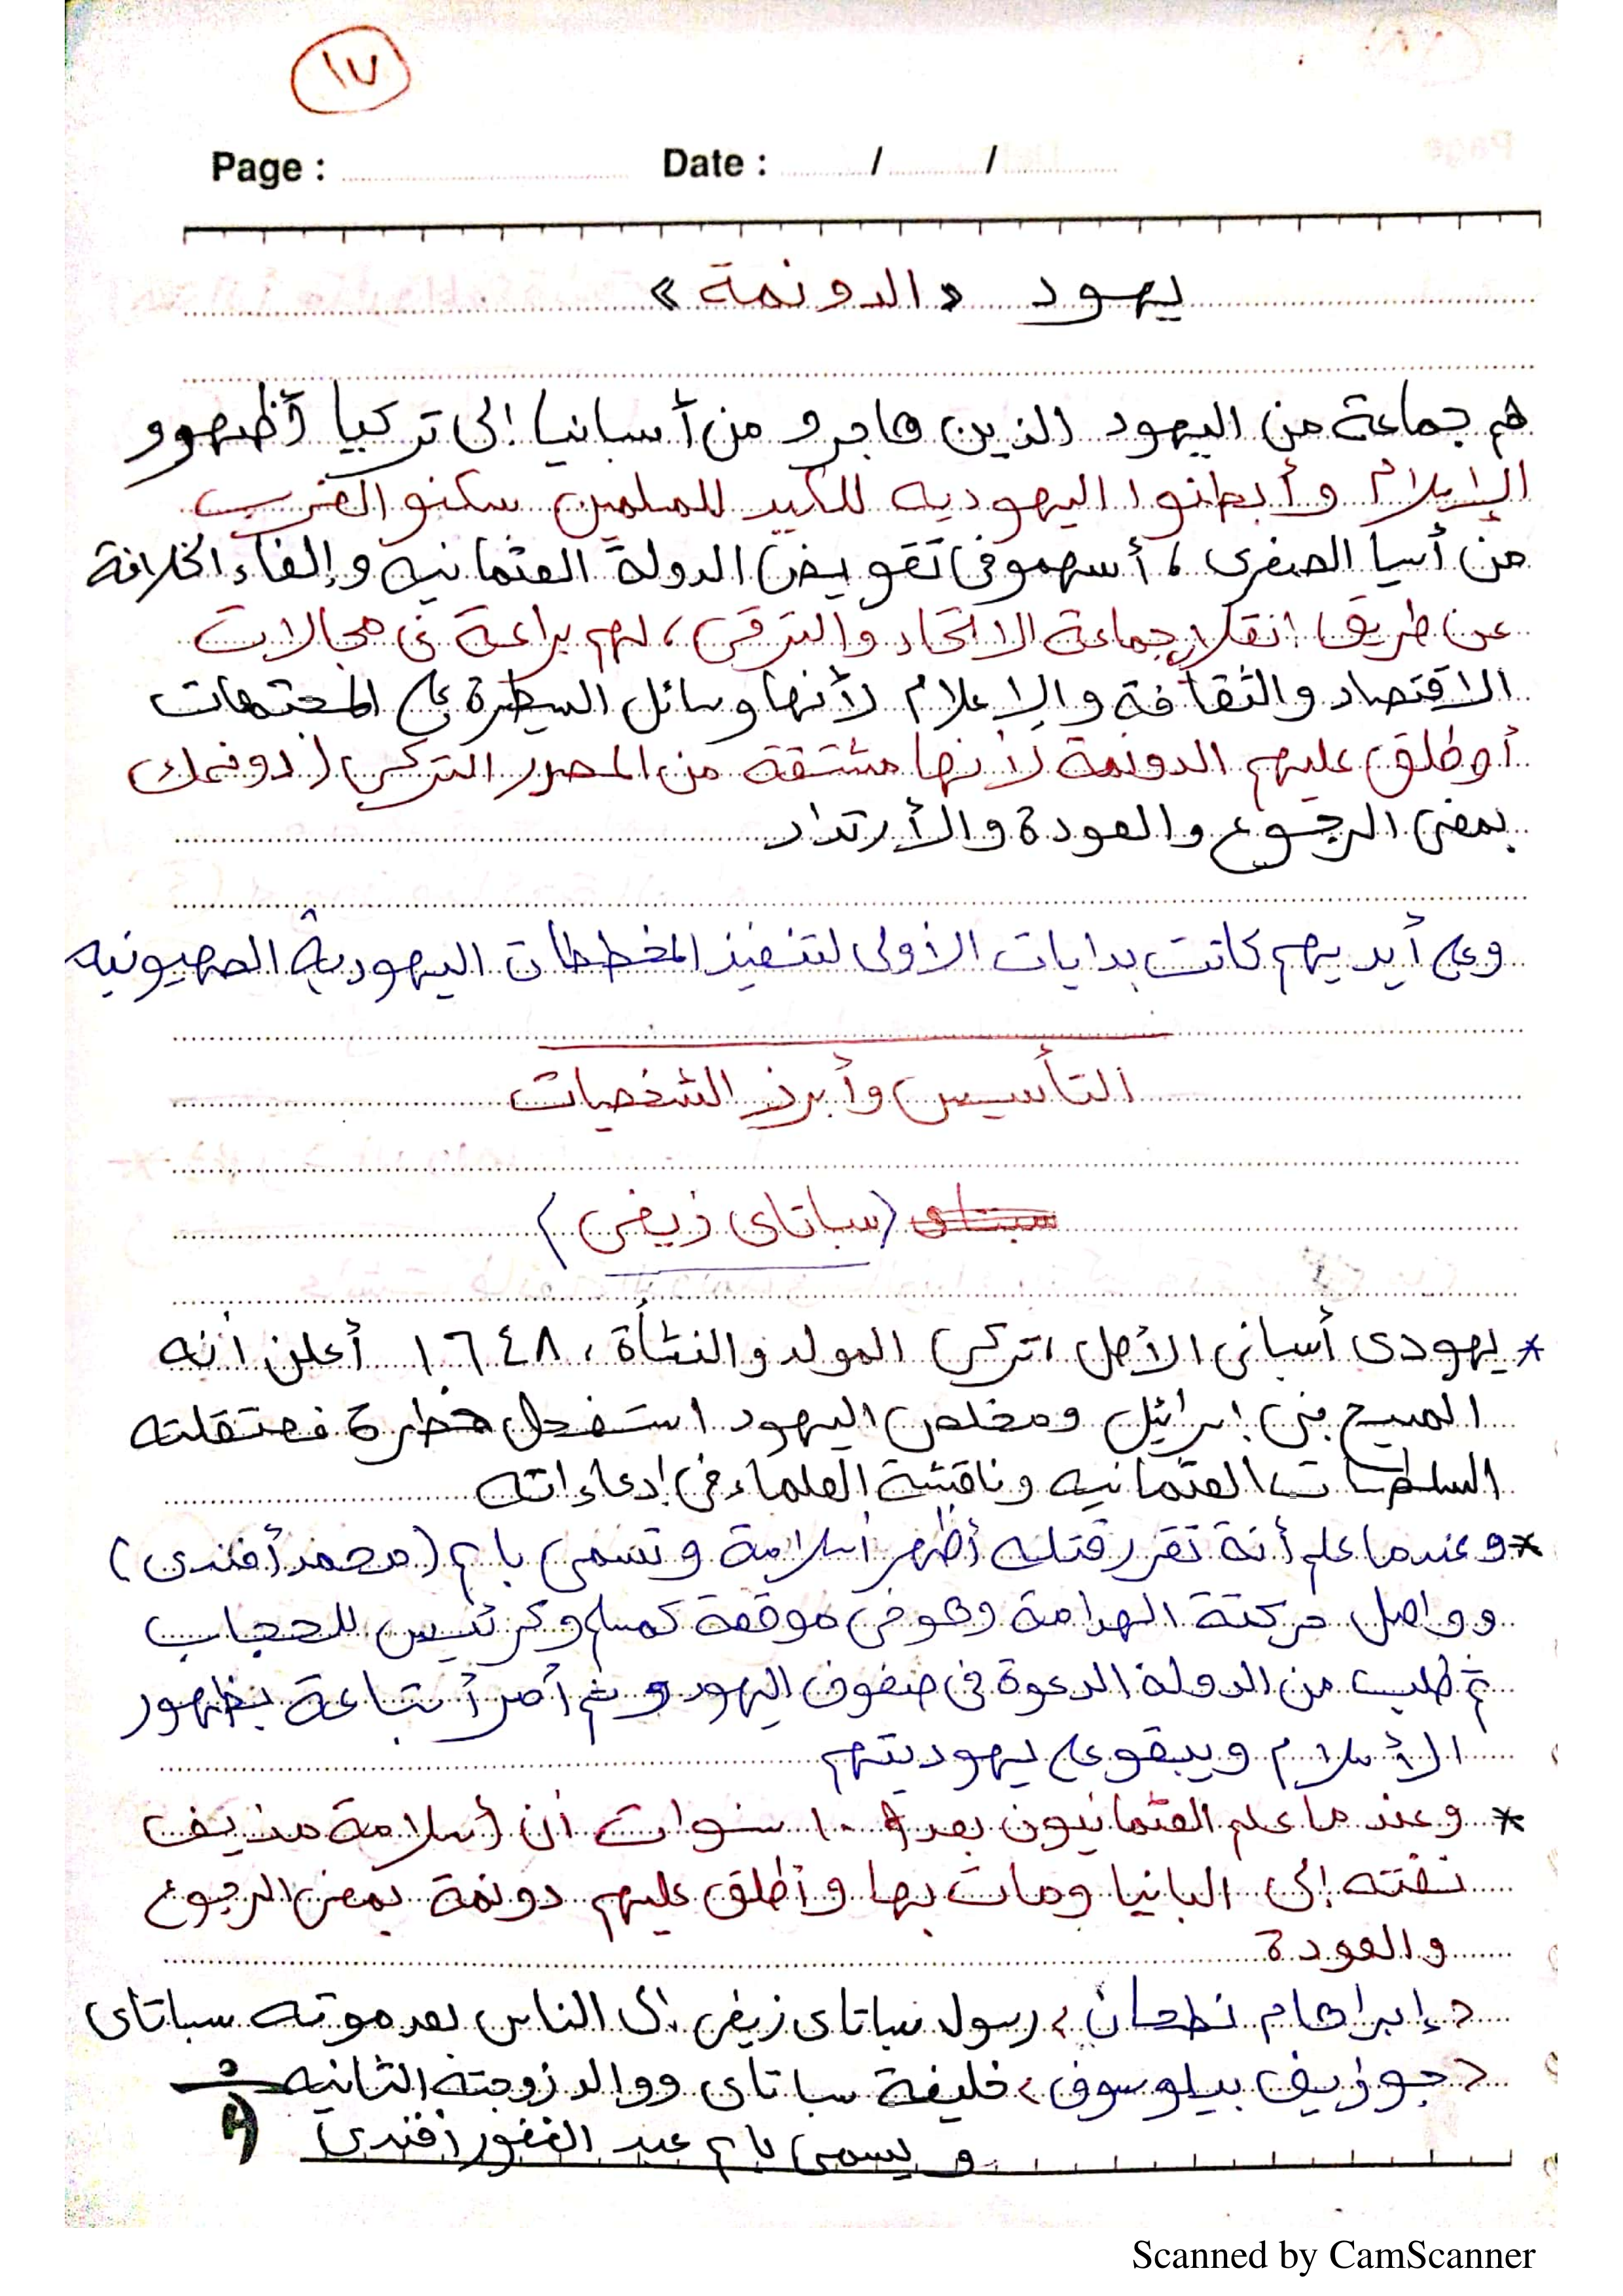 ١٧
Page : Date : / /
يهود «الدونمة»
هم جماعة من اليهود الذين هاجرو من أسبانيا إلى تركيا أظهرو
الإسلام وأبطنوا اليهوديه للكيد للمسلمين سكنو الغرب
من أسيا الصغرى ، أسهمو فى تقويض الدولة العثمانيه وإلغاء الخلافة
عن طريق انقلاب جماعة الاتحاد والترقى ، لهم براعة فى مجالات
الاقتصاد والثقافة والإعلام لأنها وسائل السيطرة على المجتمعات
أوطلق عليهم الدونمة لأنها مشتقة من المصدر التركى (دونمك
بمعنى الرجوع والعودة والأرتداد
وعلى أيديهم كانت بدايات الأولى لتنفيذ المخططات اليهودية الصهيونيه
التأسيس وأبرز الشخصيات
سبتاى (سباتاى زيفى)
* يهودى أسبانى الأصل ، تركى المولد والنشأة ، ١٦٤٨ أعلن أنه
المسيح بنى إسرائيل ومخلص اليهود استفحل خطرة فعتقلته
السلطات العثمانيه وناقشة العلماء فى إدعاءاته
* وعندما علم أنة تقرر قتله أظهر أسلامة وتسمى بأسم (محمد أفندى)
وواصل حركتة الهدامة وهو فى موقعة كمسلم وكرئيس للحجاب
ثم طلب من الدولة الدعوة فى صفوف اليهود وثم أمر أتباعة بظهور
الأسلام ويبقو على يهوديتهم
* وعند ما علم العثمانيون بعد ١٠ سنوات أن أسلامة مزيف
نفته إلى البانيا ومات بها وأطلق عليهم دونمة بمعنى الرجوع
والعودة
< إبراهام نطحان > رسول سباتاى زيفى إلى الناس بعد موته سباتاى
< جوزيف بيلوسوف > خليفة ساباتاى ووالد زوجته الثانيه
ويسمى بأسم عبد الغفور أفندى
Scanned by CamScanner